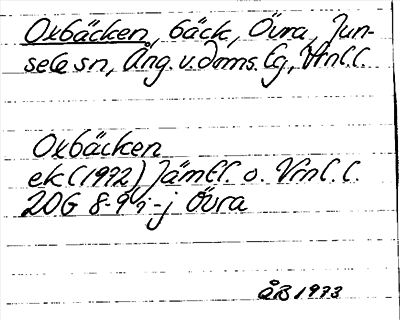 Oxbäcken, bäck, Övra, Jun-
sele sn, Ång. v. doms. lg, Vtnl. l.
Oxbäcken
ek (1972) Jämtl. o. Vrnl. l.
20G 8-9 i-j Övra
ÅB 1973